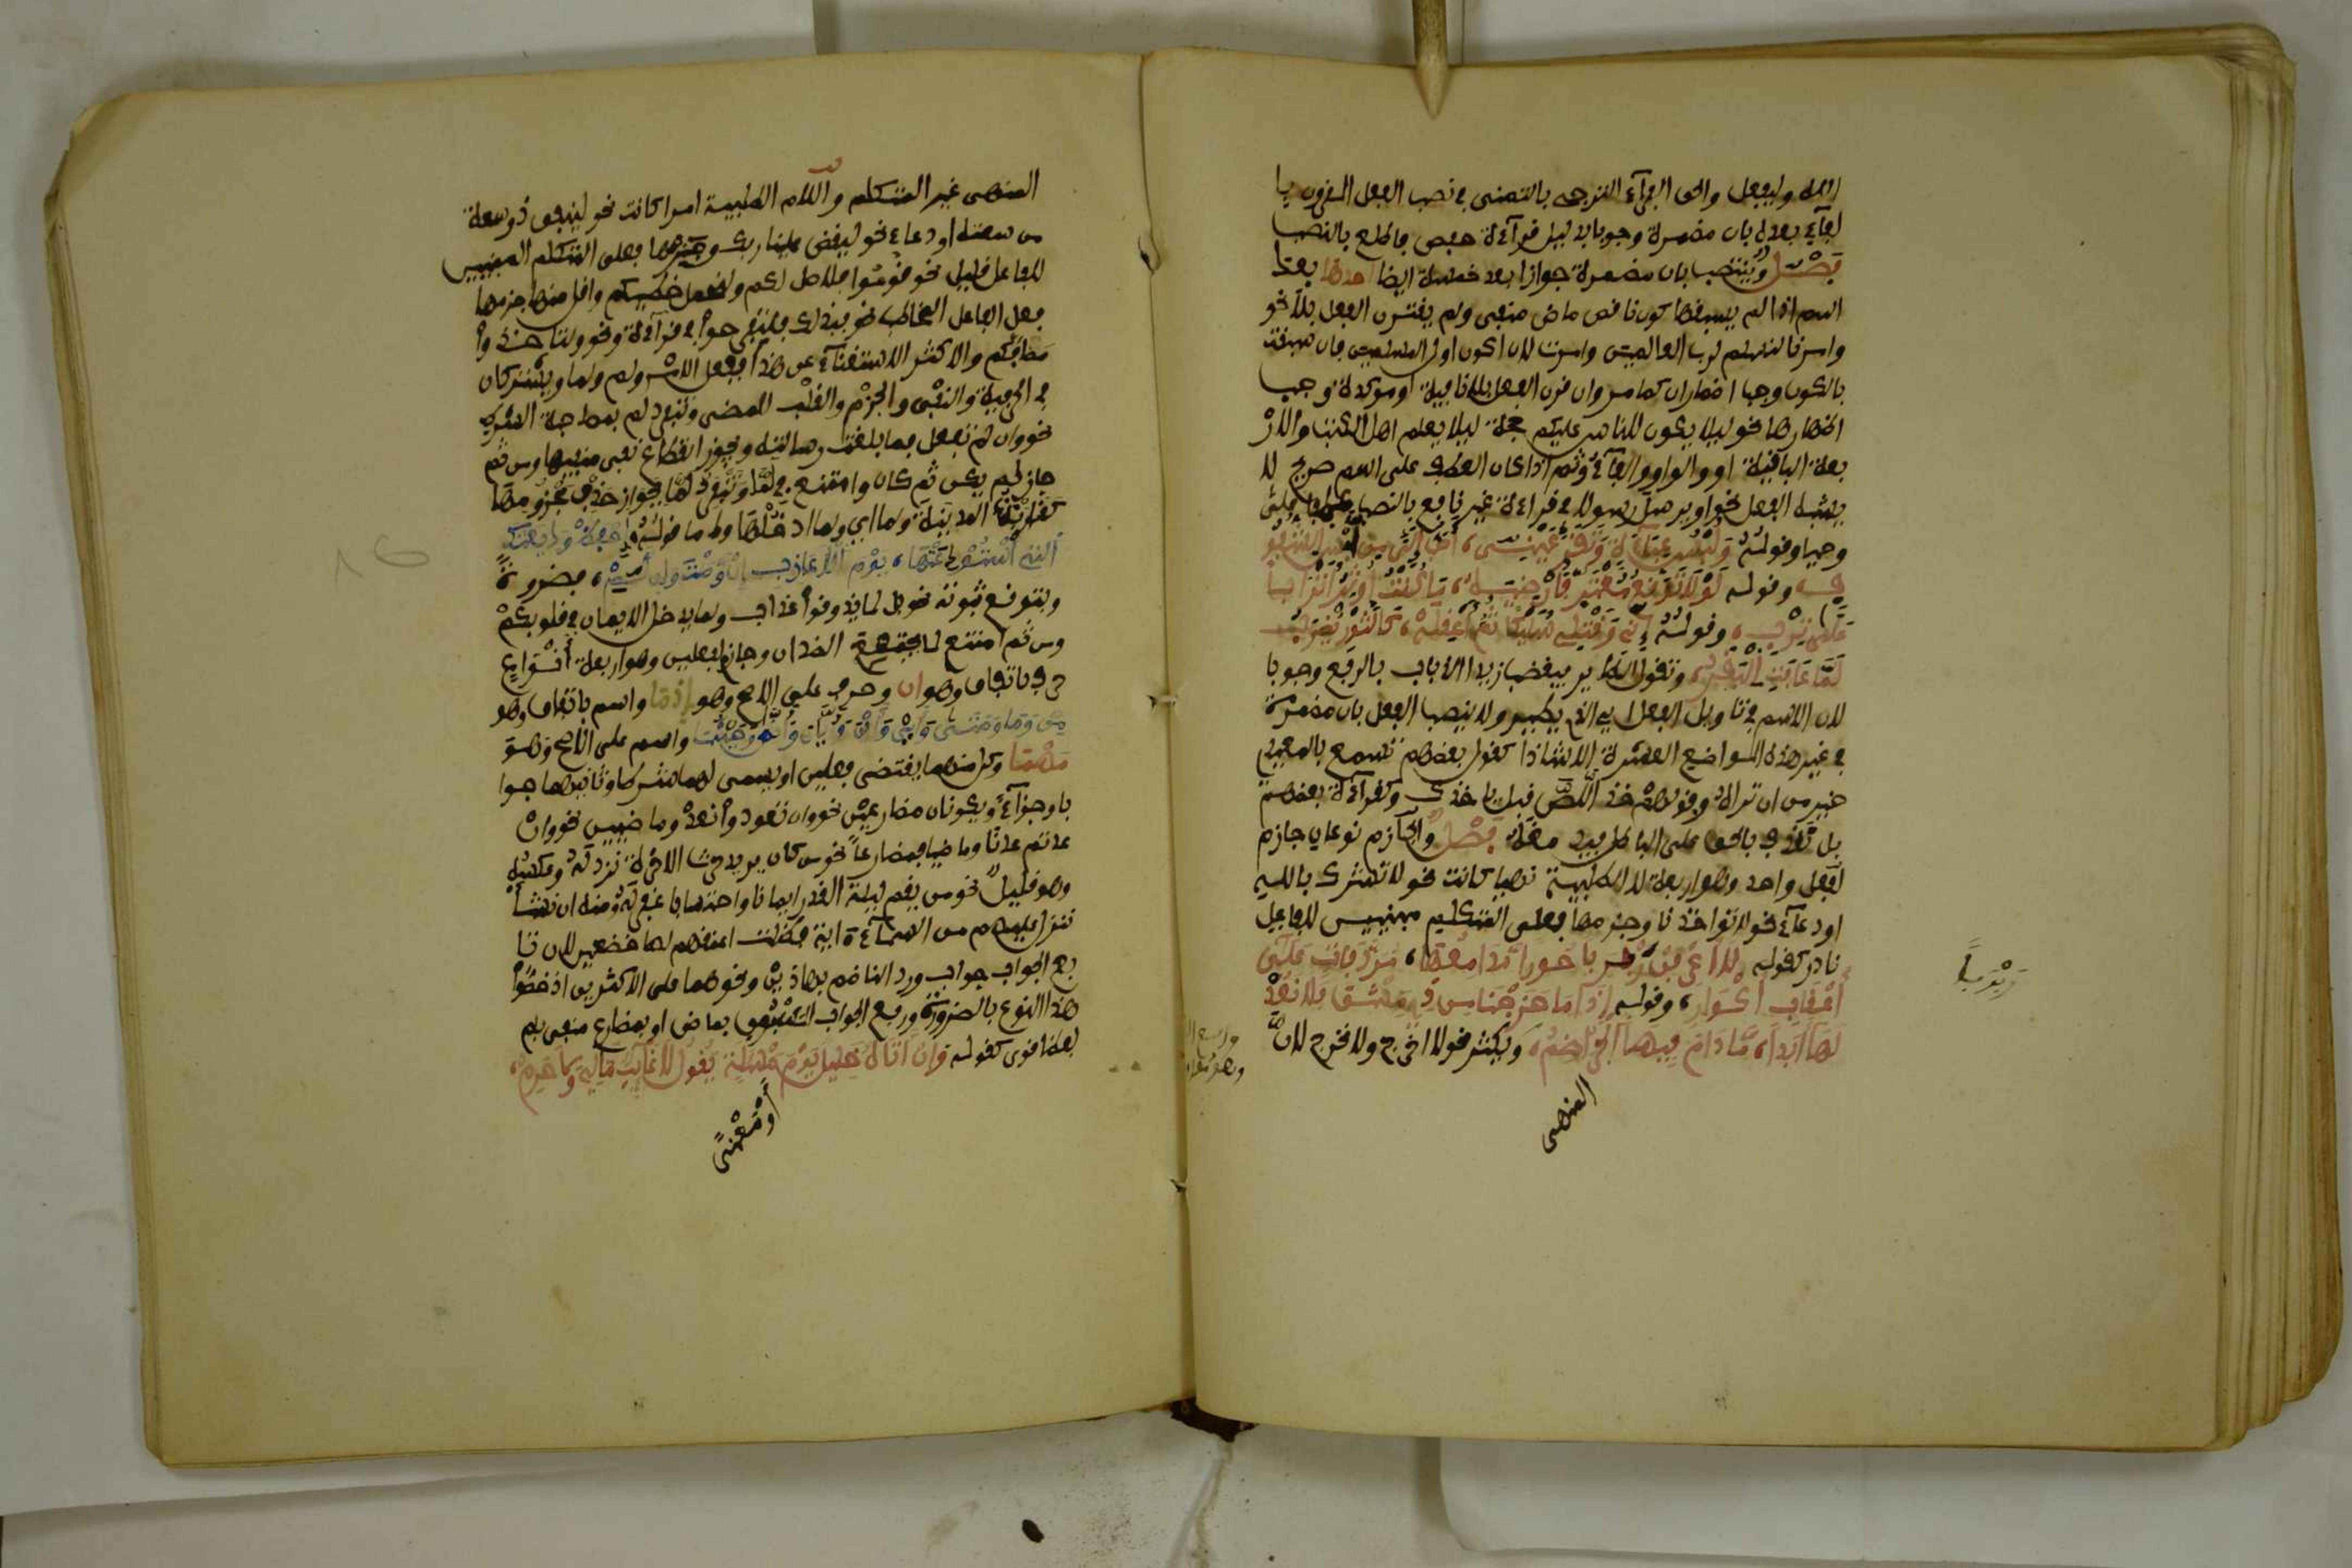 وليفعل والحق الفراء الترجي بالتمني في نصب الفعل المقرون با
لفاء بعده بان مضمرة وجوبا بدليل قراءة حفص فاطلع بالنصب
فصل وينتصب بان مضمرة جوازا بعد خمسة ايضا احدها بعد
اللام اذا لم يسبقها كون ناقص ماض منفي ولم يقترن الفعل بلا نحو
وامرنا لنسلم لرب العالمين وامرت لان اكون اول المسلمين فان سبقت
بالكون وجب اضمار ان كما مر وان قرن الفعل بلا نافية او موكدة وجب
اظهارها نحو ليلا يكون للناس عليكم حجة ليلا يعلم اهل الكتب والار
بعة الباقية او والواو والفاء وثم اذا كان العطف على اسم صريح لا
يشبه الفعل نحو او يرسل رسولا في قراءة غير نافع بالنصب
وحيا وقوله ولبس عباءة وتقر عيني، احب الي من لبس الشفو
ف، وقوله لولا توقع معتر فارضيه، ما كنت اوثر اترابا
على ترب، وقوله اني وقتلي سليكا ثم اعقله، كالثور يضرب
لما عافت البقر، وتقول الطاير فيغضب زيد الذباب بالرفع وجوبا
لان الاسم في تاويل الفعل اي الذي يطير ولا ينصب الفعل بان مضمرة
في غير هذه المواضع العشرة الا شاذا كقول بعضهم تسمع بالمعيدي
خير من ان تراه وقولهم خذ اللص قبل ياخذك وكقراءة بعضهم
بل نقذف بالحق على الباطل فيدمغه فصل والجازم نوعان جازم
لفعل واحد وهو اربعة لا الطلبية نهيا كانت نحو لا تشرك بالله
او دعاء نحو لا تواخذنا وجزمها فعلي المتكلم مبنيين للفاعل
نادر كقوله لا اعرفن ربربا حورا مدامعها، مردفات على
اعقاب اكوار، وقوله اذا ما خرجنا من دمشق فلا نعد
لها ابدا، ما دام فيها الجراضم، ويكثر نحو لا اخرج ولا نخرج لان
المنهي
المنهي غير المتكلم واللام الطلبية امرا كانت نحو لينفق ذو سعة
من سعته او دعاء نحو ليقض علينا ربك وجزمها فعلي المتكلم المبنيين
للفاعل قليل نحو قوموا فلاصل لكم ولنحمل خطيكم واقل منه جزمها
فعل الفاعل المخاطب نحو فبذلك فلتفرحوا في قراءة ونحو لتاخذوا
مصافكم والاكثر الاستغناء عن هذا بفعل الامر ولم ولما ويشتركان
في الحرفية والنفي والجزم والقلب للمضي وتنفرد لم بمصاحبة الشرط
نحو وان لم تفعل فما بلغت رسالته وبجواز انقطاع نفي منفيها ومن ثم
جاز لم يكن ثم كان وامتنع في لما وتنفرد لما بجواز حذف مجزومها
كقاربت المدينة ولما اي ولما ادخلها فاما قوله احفظ وديعتك
التي استودعتها، يوم الاعازب ان وصلت وان لم، فضرورة
وبتوقع ثبوته نحو بل لما يذوقوا عذاب ولما يدخل الايمان في قلوبكم
ومن ثم امتنع لما يجتمع الضدان وجازم لفعلين وهو اربعة انواع
حرف باتفاق وهو ان وحرف على الاصح وهو اذما واسم باتفاق وهو
من وما ومتى واي واين وايان وانى وحيثما واسم على الاصح وهو
مهما وكل منهما يقتضي فعلين او يسمى لهما شرطا وثانيهما جوا
با وجزاء ويكونان مضارعين نحو وان تعودوا نعد وماضيين نحو وان
عدتم عدنا وماضيا فمضارعا نحو من كان يريد حرث الاخرة نزد له وعكسه
وهو قليل نحو من يقم ليلة القدر ايمانا واحتسابا غفر له ومنه ان نشا
ننزل عليهم من السماء اية فظلت اعناقهم لها خضعين لان تا
بع الجواب جواب ورد الناظم بهاذين ونحوهما على الاكثرين اذ خصوا
هذا النوع بالضرورة ورفع الجواب المسبوق بماض او بمضارع منفي بلم
بعدها قوي كقوله وان اتاه خليل يوم مسئلة يقول لا غايب مالي ولا حرم،